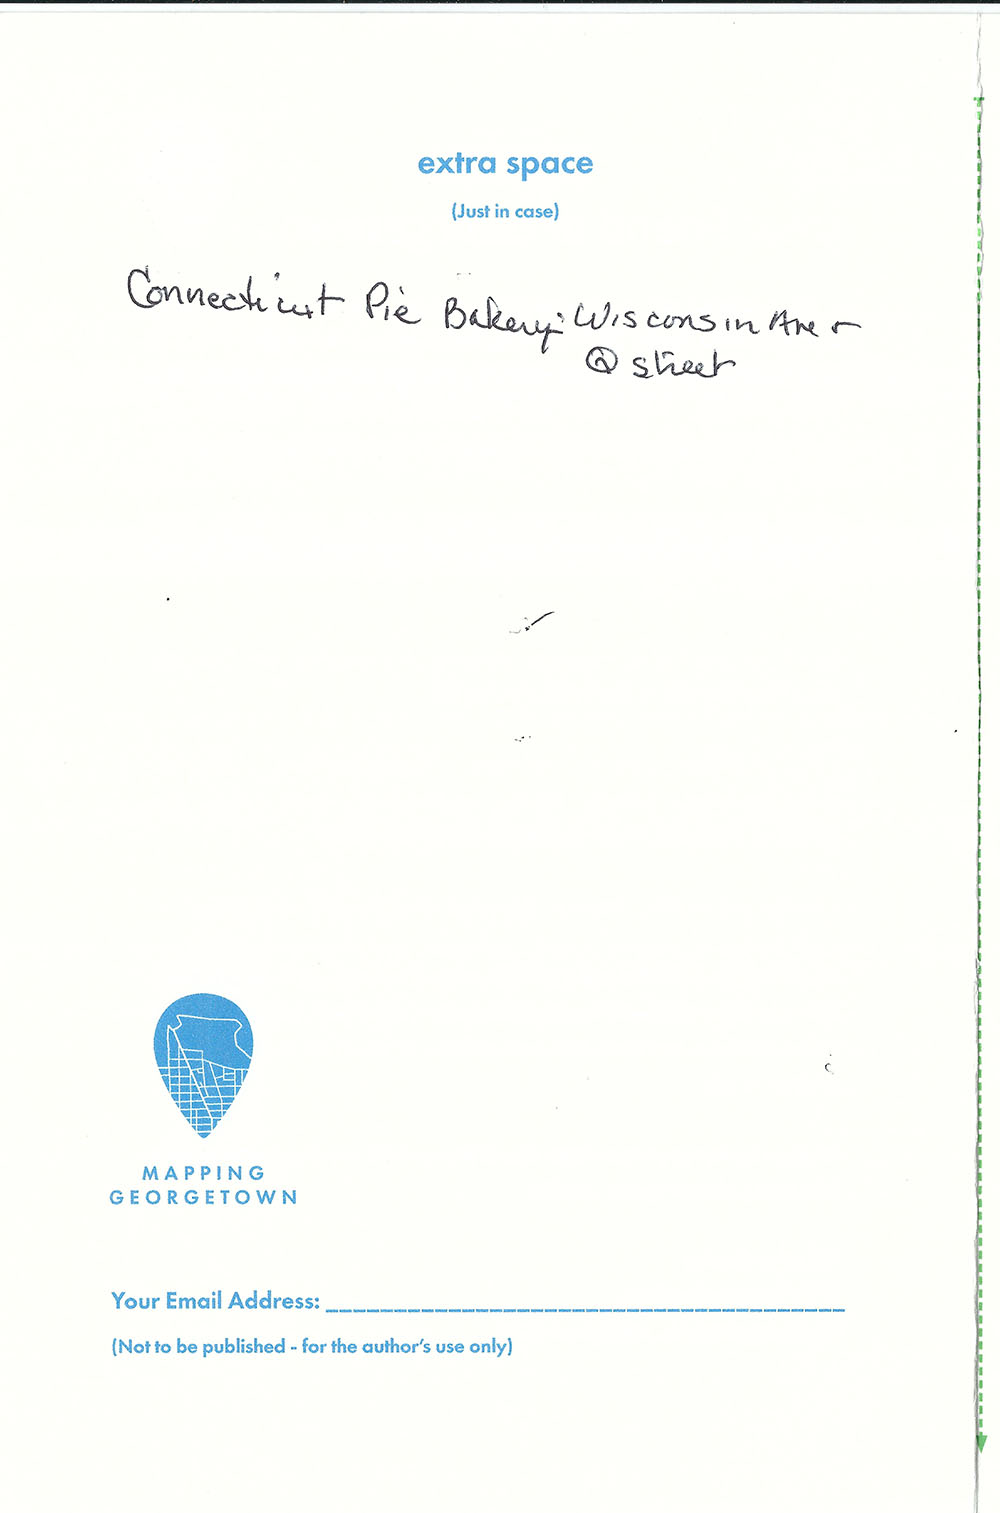 extra space
(Just in case)
Connecticut Pie Bakery: Wisconsin Ave +
Q street
MAPPING
GEORGETOWN
Your Email Address:
(Not to be published - for the author's use only)